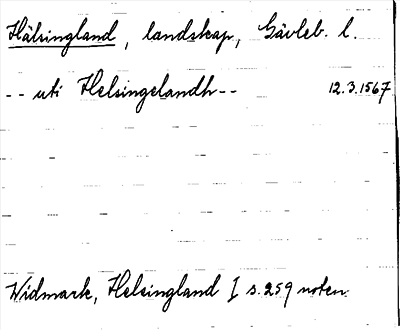 Hälsingland, landskap, Gävleb. l.
-- uti Helsingelandh-- 12.3.1567
Widmark, Helsingland I s. 259 noten.